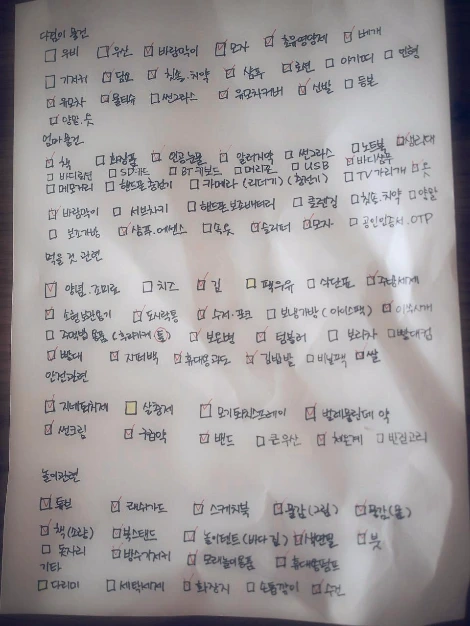 다원이 물건
우비 우산 바람막이 모자 초유영양제 베개
기저귀 담요 칫솔.치약 샴푸 로션 아기띠 인형
유모차 물티슈 썬그라스 유모차커버 신발 튜브
양말.옷
엄마물건
책 화장품 인공눈물 알러지약 썬그라스 노트북 생리대
바디로션 SD카드 BT키보드 머리끈 USB 바디샴푸
메모리 핸드폰충전기 카메라 (리더기)(충전기) TV가리개 옷
바람막이 서브차키 핸드폰보조배터리 클렌징 칫솔.치약 양말
보조가방 샴푸.에센스 속옷 슬리퍼 모자 공인인증서.OTP
먹을것 관련
양념.조미료 치즈 김 팩우유 식단표 주방세제
도시락통 수저.포크 보냉가방 (아이스팩) 이쑤시개
보온병 텀블러 보리차 빨대컵
빨대 지퍼백 휴대용과도 김밥발 비닐팩 쌀
안전관련
지네퇴치제 상충제 모기퇴치스프레이 벌레물린데 약
썬크림 구급약 밴드 큰우산 체온계
놀이관련
튜브 래쉬가드 스케치북 물감(그림) 물감(물)
책(소량) 북스탠드 놀이텐트 색연필 붓
돗자리 모래놀이용품 휴대용펌프
기타
다리미 세탁세제 화장지 손톱깎이 수건